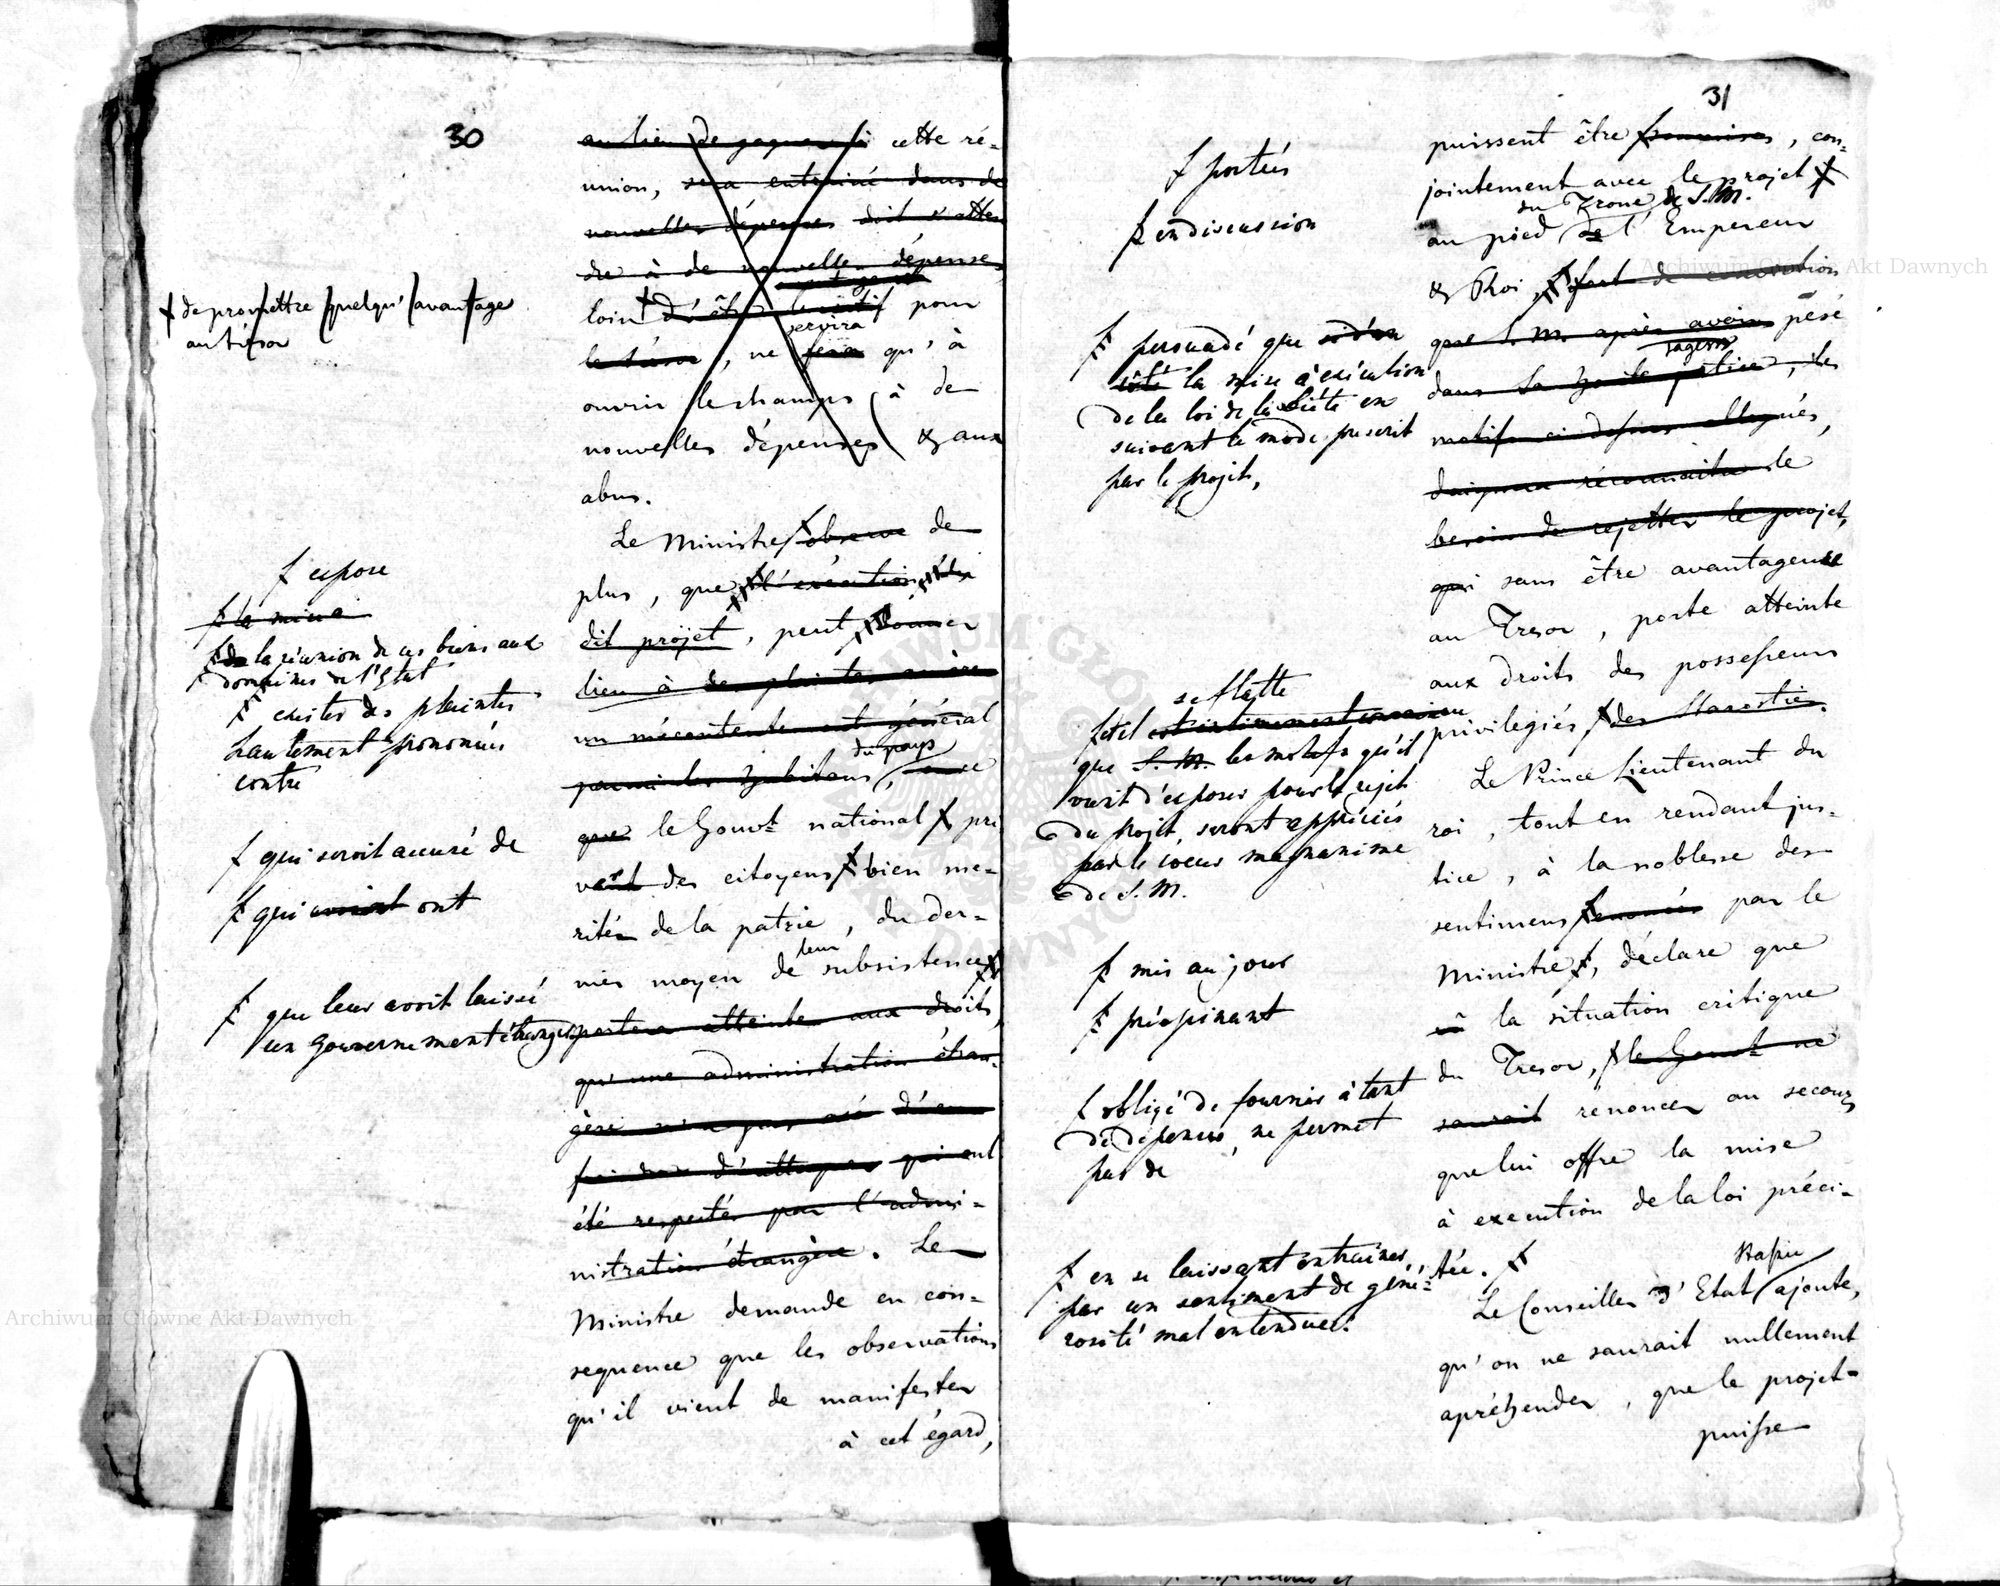 30
au lieu de gagner à cette ré-
union, sera entrainé dans de
nouvelles dépenses doit s'atten
dre à de nouvelles dépenses
loin d'être lucratif pour
servira
le trésor, ne sera qu'à
ouvrir le champs à de
nouvelles dépenses & aux
abus.
Le Ministre observe de
plus, que l'exécution du
dit projet, peut donner
lieu à des plaintes
un mécontentement général
du pays
parmi les habitans,
que le Gouvt national pri
vant des citoyens bien me-
rités de la patrie, du der-
leur
nier moyen de subsistence
portera atteinte aux droits,
qu'une administration étran-
gère n'a pas osé
d'attaquer qui ont
été respectés par l'admi-
nistration étrangère. Le
Ministre demande en con-
sequence que les observations
qu'il vient de manifester
à cet égard,
de promettre quelqu'avantage
au trésor
expose
la mise
de la réunion de ces biens aux
domaines de l'Etat
exciter des plaintes
hautement prononcées
contre
qui seroit accusé de
qui avoient ont
que leur avoit laissé
un Gouvernement étranger
31
puissent être soumises, con-
jointement avec le projet
du Trone de S. M.
au pied de l'Empereur
& Roi, fort de conviction
que S. M. après avoir pésé
sagesse
dans Sa haute justice, les
motifs ci dessus allegués,
daignera réconnaitre le
besoin de rejetter le projet,
qui sans être avantageuse
au Tresor, porte atteinte
aux droits des possesseurs
privilegiés des Starosties.
Le Prince Lieutenant du
roi, tout en rendant jus-
tice, à la noblesse des
sentimens énoncés par le
Ministre, déclare que
la situation critique
du Tresor, le Gouvt ne
saurait renoncer au secours
que lui offre la mise
à execution de la loi préci-
tée.
Staszic
Le Conseiller d'Etat ajoute,
qu'on ne saurait nullement
apréhender, que le projet
puisse
portées
en discussion
persuadé que
la mise à exécution
de la loi de la Diète en
suivant le mode prescrit
par le projet,
se flatte
et il est intimement
que S. M. les motifs qu'il
vient d'exposer pour le rejet
du projet, seront appréciés
par le coeur magnanime
de S. M.
mis au jour
préopinant
obligé de fournir à tant
de dépenses, ne permet
pas de
en se laissant entrainer
par un sentiment de géné-
rosité mal entendue.
Archiwum Główne Akt Dawnych
Archiwum Główne Akt Dawnych